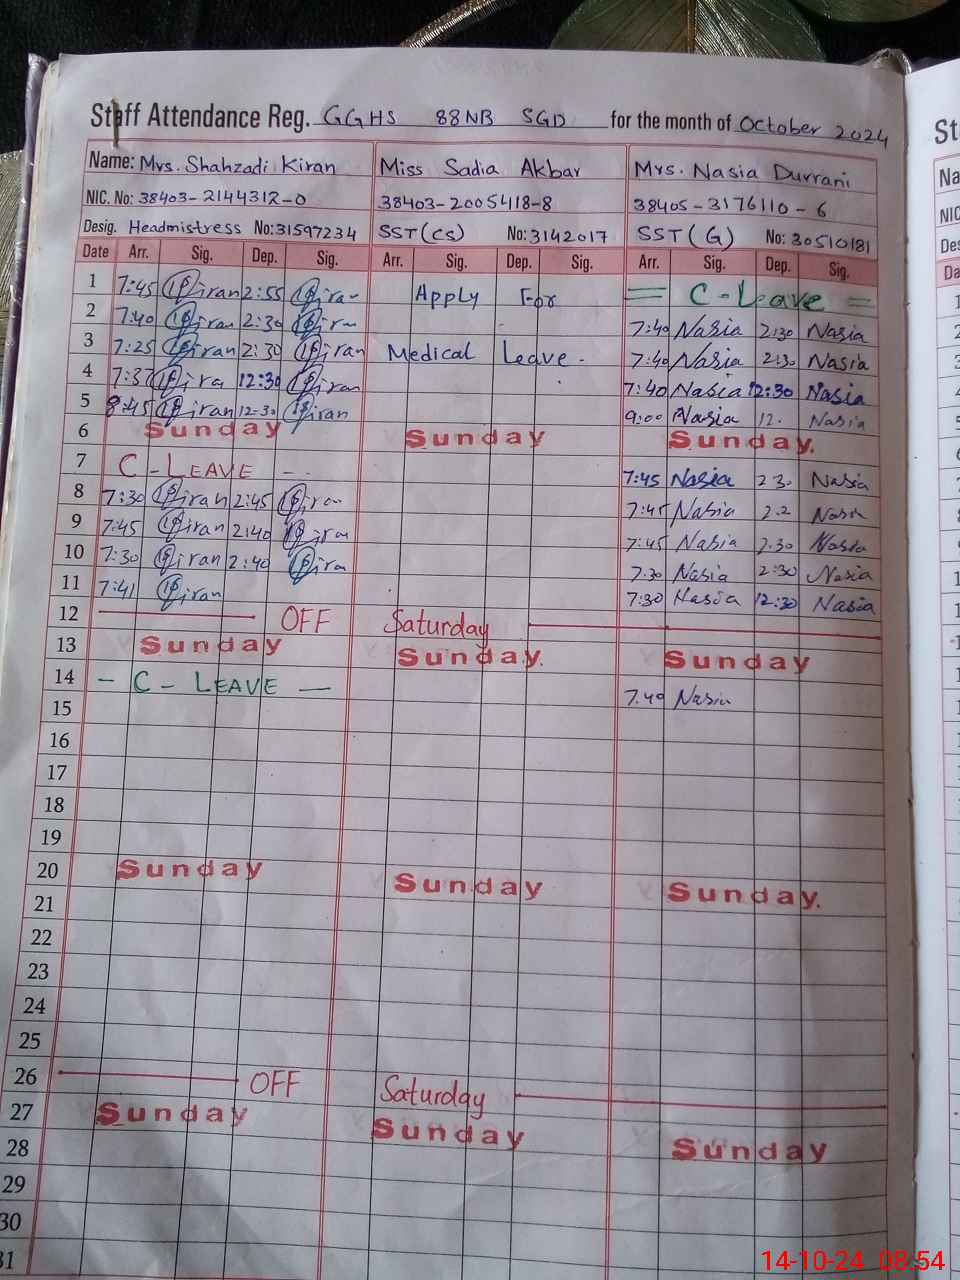 Staff Attendance Reg. GGHS 88NB SGD for the month of October 2024
Name: Mrs. Shahzadi Kiran Miss Sadia Akbar Mrs. Nasia Durrani
NIC. No: 38403-2144312-0 38403-2005418-8 38405-3176110-6
Desig. Headmistress No: 31597234 SST(CS) No: 3142017 SST(G) No: 30510181
Date Arr. Sig. Dep. Sig. Arr. Sig. Dep. Sig. Arr. Sig. Dep. Sig.
1 7:45 Kiran 2:55 Kiran Apply For = C-Leave =
2 7:40 Kiran 2:30 Kiran 7:40 Nasia 2:30 Nasia
3 7:25 Kiran 2:30 Kiran Medical Leave. 7:40 Nasia 2:30 Nasia
4 7:37 Kiran 12:30 Kiran 7:40 Nasia 12:30 Nasia
5 8:45 Kiran 12:30 Kiran 9:00 Nasia 12. Nasia
6 Sunday Sunday Sunday.
7 C-LEAVE -.. 7:45 Nasia 230 Nasia
8 7:30 Kiran 2:45 Kiran 7:45 Nasia 2.2 Nasia
9 7:45 Kiran 2:40 Kiran 7:45 Nasia 2:30 Nasia
10 7:30 Kiran 2:40 Kiran 7.30 Nasia 2:30 Nasia
11 7:41 Kiran 7:30 Nasia 12:30 Nasia
12 OFF Saturday
13 Sunday Sunday. Sunday
14 - C - LEAVE — 7.40 Nasia
15
16
17
18
19
20 Sunday Sunday Sunday.
21
22
23
24
25
26 OFF Saturday
27 Sunday Sunday Sunday
28
29
30
31
St
Na
NIC
Des
Da
14-10-24 08:54